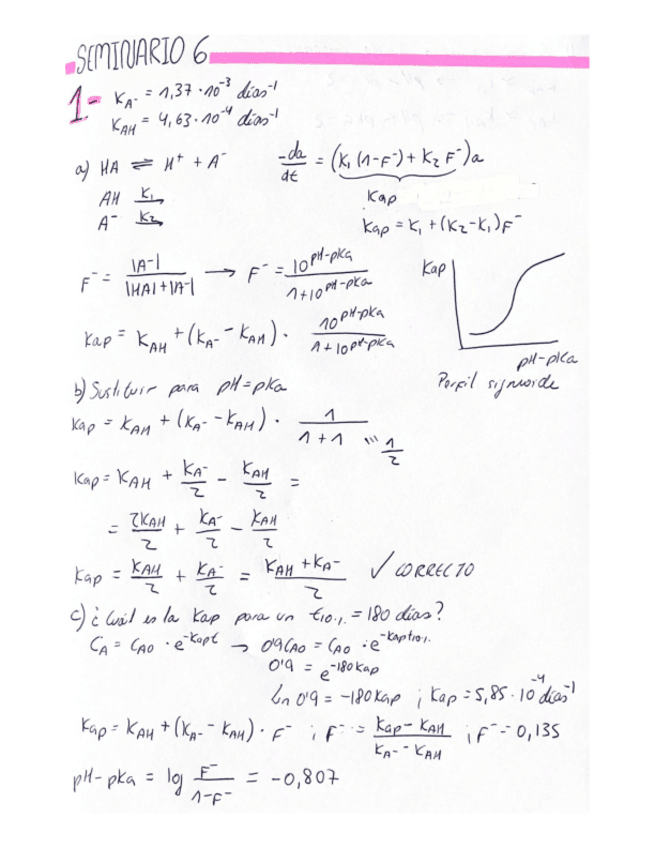 SEMINARIO 6
1- K_A- = 1,37 · 10^-3 días^-1
K_AH = 4,63 · 10^-4 días^-1
a) HA ⇌ H+ + A-
-da/dt = (K1 (1-F-) + K2 F-)a
AH K1→
Kap
A- K2→
Kap = K1 + (K2-K1)F-
F- = |A-| / |HA|+|A-| → F- = 10^pH-pKa / 1+10^pH-pKa
Kap
Kap = K_AH + (K_A- - K_AH) · 10^pH-pKa / 1+10^pH-pKa
pH-pKa
Perfil sigmoide
b) Sustituir para pH=pKa
Kap = K_AH + (K_A- - K_AH) · 1 / 1+1 ''' 1/2
Kap = K_AH + K_A-/2 - K_AH/2 =
= 2K_AH/2 + K_A-/2 - K_AH/2
Kap = K_AH/2 + K_A-/2 = K_AH + K_A- / 2 ✓ CORRECTO
c) ¿Cuál es la Kap para un t10% = 180 días?
C_A = C_A0 · e^-Kapt → 0'9C_A0 = C_A0 · e^-Kapt10%
0'9 = e^-180Kap
Ln 0'9 = -180Kap ; Kap = 5,85 · 10^-4 días^-1
Kap = K_AH + (K_A- - K_AH) · F- ; F- = Kap - K_AH / K_A- - K_AH ; F- = 0,135
pH-pKa = log F- / 1-F- = -0,807